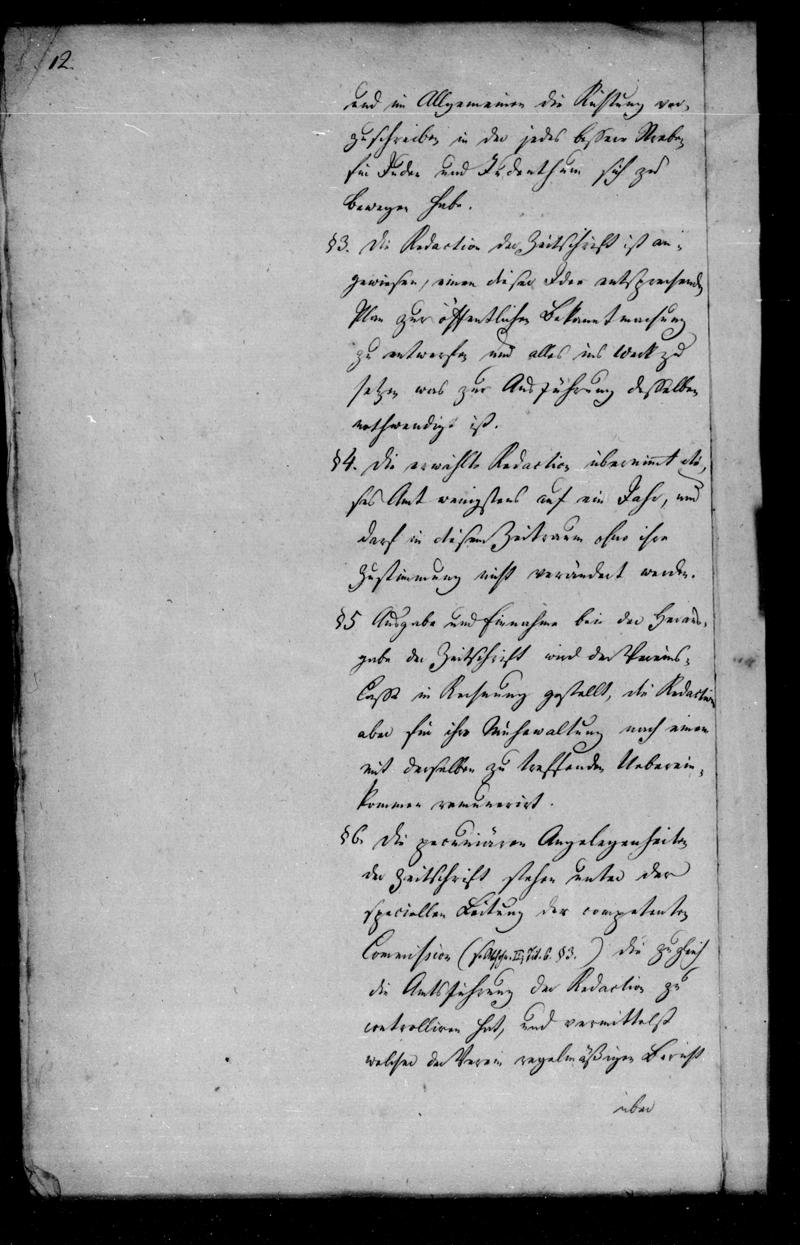 12.
und im Allgemeinen die Richtung vor-
zuschreiben in der jedes bessere Streben
für Juden und Judenthum sich zu
bewegen habe.
§3. Die Redaction der Zeitschrift ist an-
gewiesen, einen dieser Idee entsprechenden
Plan zur öffentlichen Bekanntmachung
zu entwerfen und alles ins Werk zu
setzen was zur Ausführung desselben
nothwendig ist.
§4. Die erwählte Redaction übernimmt die-
ses Amt wenigstens auf ein Jahr, und
darf in diesem Zeitraum ohne ihre
Zustimmung nicht verändert werden.
§5 Ausgabe und Einnahme bei der Heraus-
gabe der Zeitschrift wird der Vereins-
Casse in Rechnung gestellt, die Redaction
aber für ihre Mühewaltung nach einem
mit derselben zu treffenden Ueberein-
kommen remunerirt.
§6. Die pecuniären Angelegenheiten
der Zeitschrift stehen unter der
speciellen Leitung der competenten
Commission (s. Abschn. II, Tit. 6. §3.) die zugleich
die Amtsführung der Redaction zu
controlliren hat, und vermittelst
welcher der Verein regelmäßigen Bericht
über